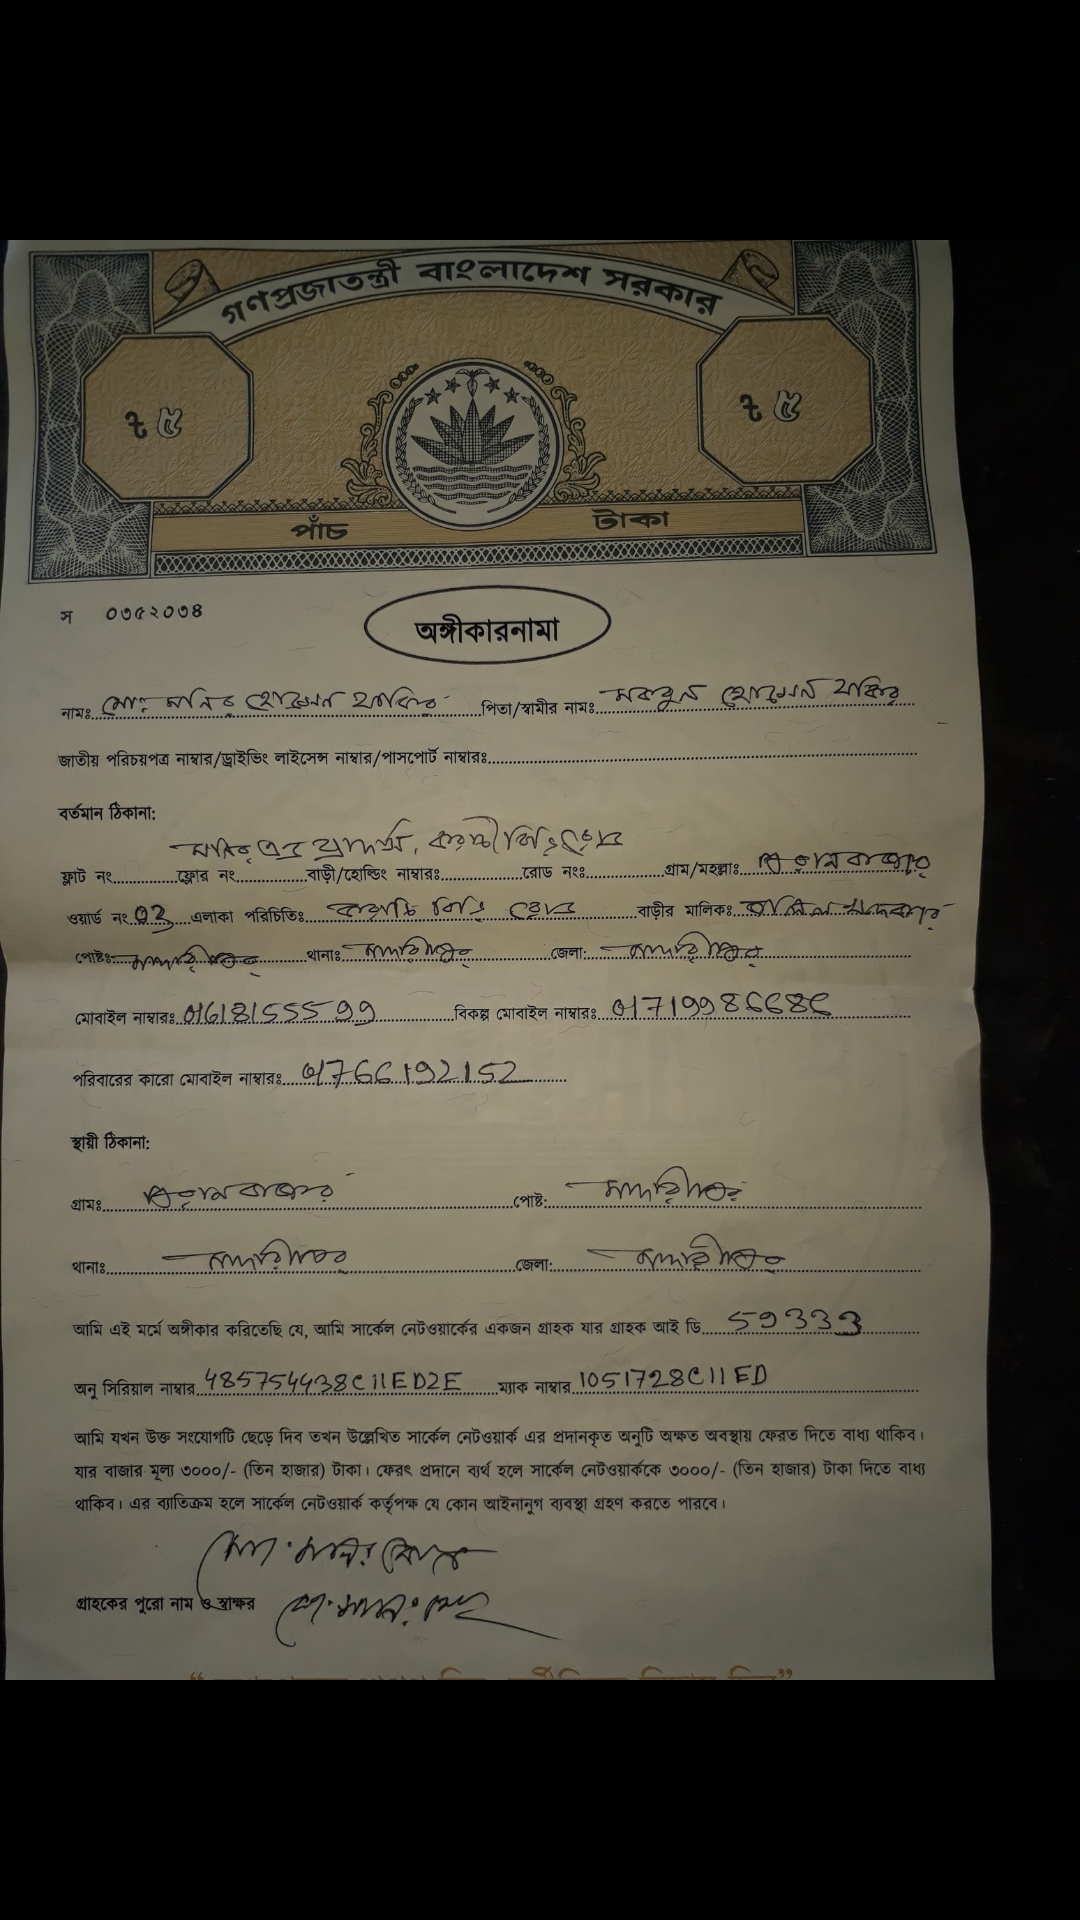 গণপ্রজাতন্ত্রী বাংলাদেশ সরকার
৳ ৫ ৳ ৫
পাঁচ টাকা
স ০৩৫২০৩৪
অঙ্গীকারনামা
নামঃ মোঃ মনির হোসেন ফকির পিতা/স্বামীর নামঃ হোসেন ফকির
জাতীয় পরিচয়পত্র নাম্বার/ড্রাইভিং লাইসেন্স নাম্বার/পাসপোর্ট নাম্বারঃ
বর্তমান ঠিকানা:
ফ্লাট নং ফ্লোর নং বাড়ী/হোল্ডিং নাম্বারঃ রোড নংঃ গ্রাম/মহল্লাঃ
ওয়ার্ড নং 03 এলাকা পরিচিতিঃ রোড বাড়ীর মালিকঃ
পোষ্টঃ মাদারীপুর থানাঃ মাদারীপুর জেলা: মাদারীপুর
মোবাইল নাম্বারঃ 01618155599 বিকল্প মোবাইল নাম্বারঃ 01719986686
পরিবারের কারো মোবাইল নাম্বারঃ 01766192152
স্থায়ী ঠিকানা:
গ্রামঃ পোষ্ট: মাদারীপুর
থানাঃ মাদারীপুর জেলা: মাদারীপুর
আমি এই মর্মে অঙ্গীকার করিতেছি যে, আমি সার্কেল নেটওয়ার্কের একজন গ্রাহক যার গ্রাহক আই ডি 59333
অনু সিরিয়াল নাম্বার 485754438C11ED2E ম্যাক নাম্বার 1051728C11ED
আমি যখন উক্ত সংযোগটি ছেড়ে দিব তখন উল্লেখিত সার্কেল নেটওয়ার্ক এর প্রদানকৃত অনুটি অক্ষত অবস্থায় ফেরত দিতে বাধ্য থাকিব।
যার বাজার মূল্য ৩০০০/- (তিন হাজার) টাকা। ফেরৎ প্রদানে ব্যর্থ হলে সার্কেল নেটওয়ার্ককে ৩০০০/- (তিন হাজার) টাকা দিতে বাধ্য
থাকিব। এর ব্যাতিক্রম হলে সার্কেল নেটওয়ার্ক কর্তৃপক্ষ যে কোন আইনানুগ ব্যবস্থা গ্রহণ করতে পারবে।
মোঃ মনির হোসেন
গ্রাহকের পুরো নাম ও স্বাক্ষর